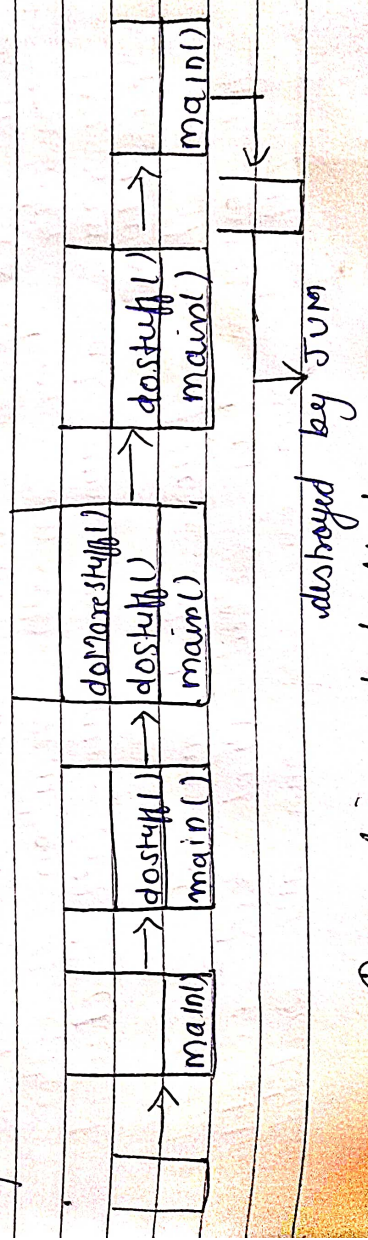 main()
dostuff()
main()
doMorestuff()
dostuff()
main()
dostuff()
main()
main()
destroyed by JVM